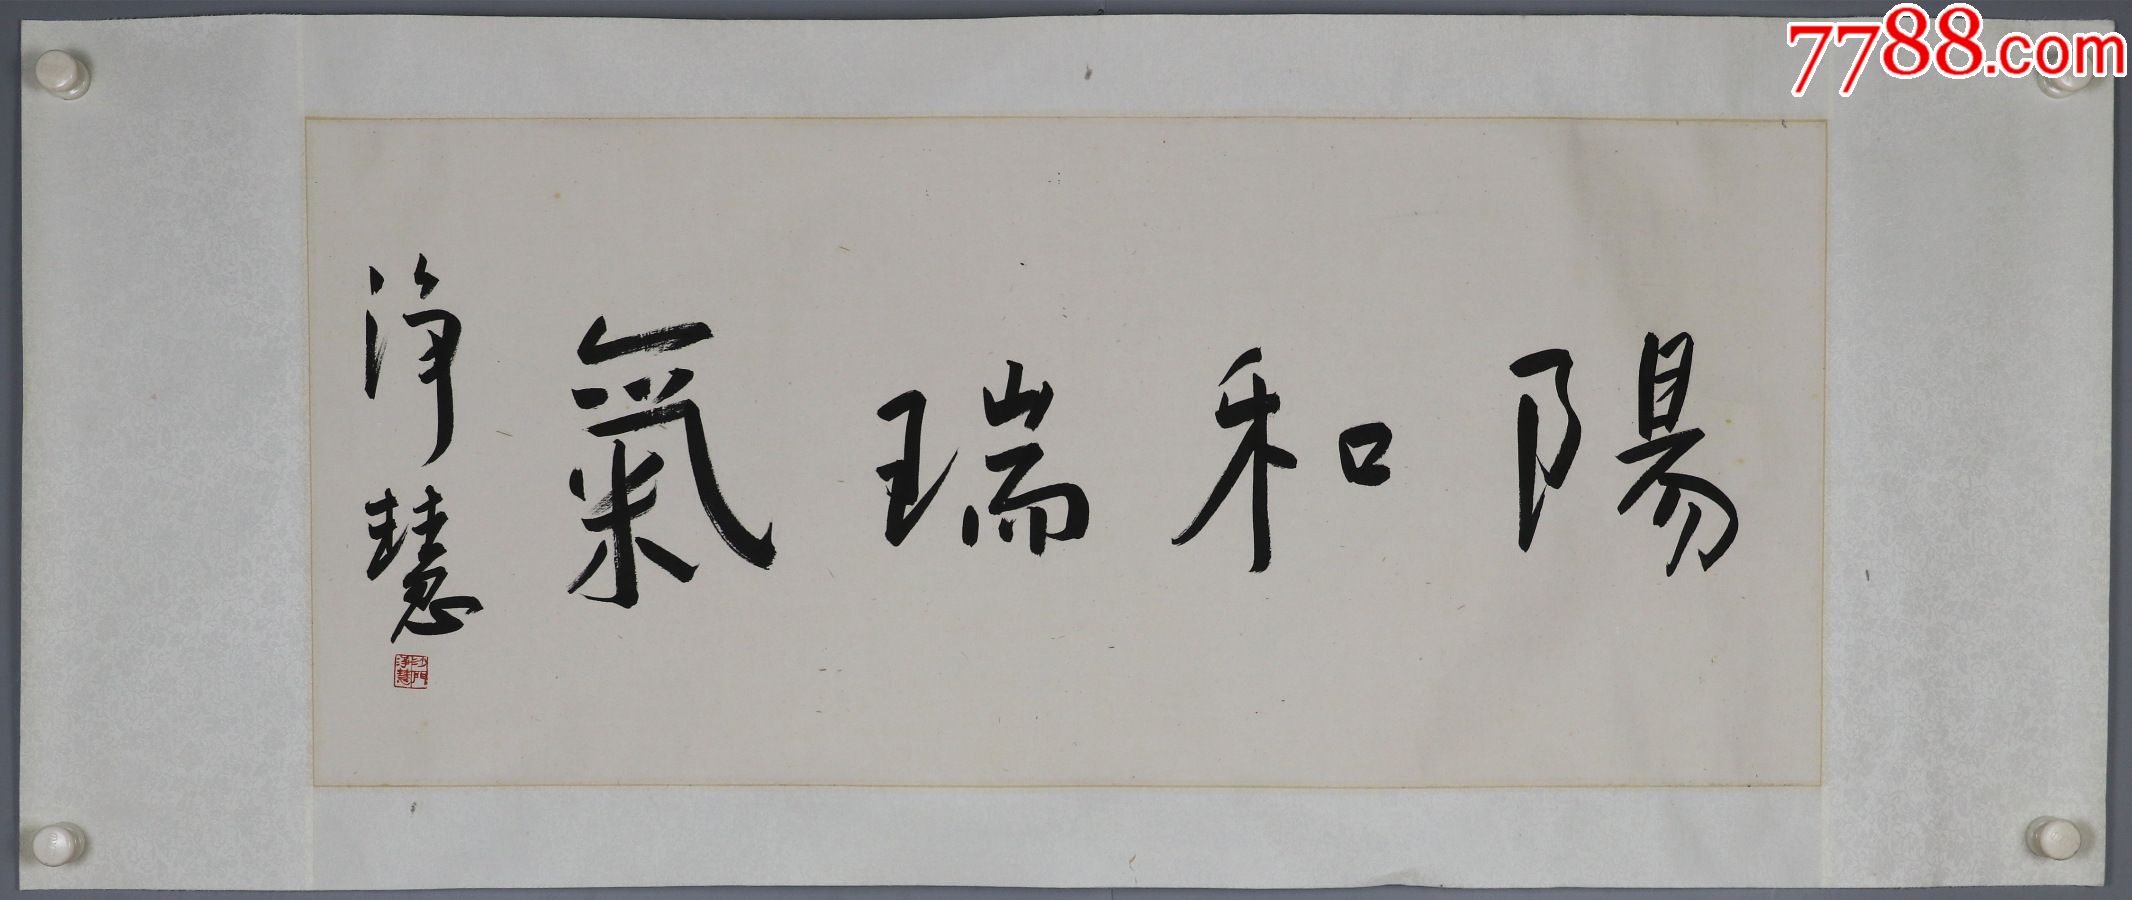 陽和瑞氣
淨慧
沙門
淨慧
7788.com